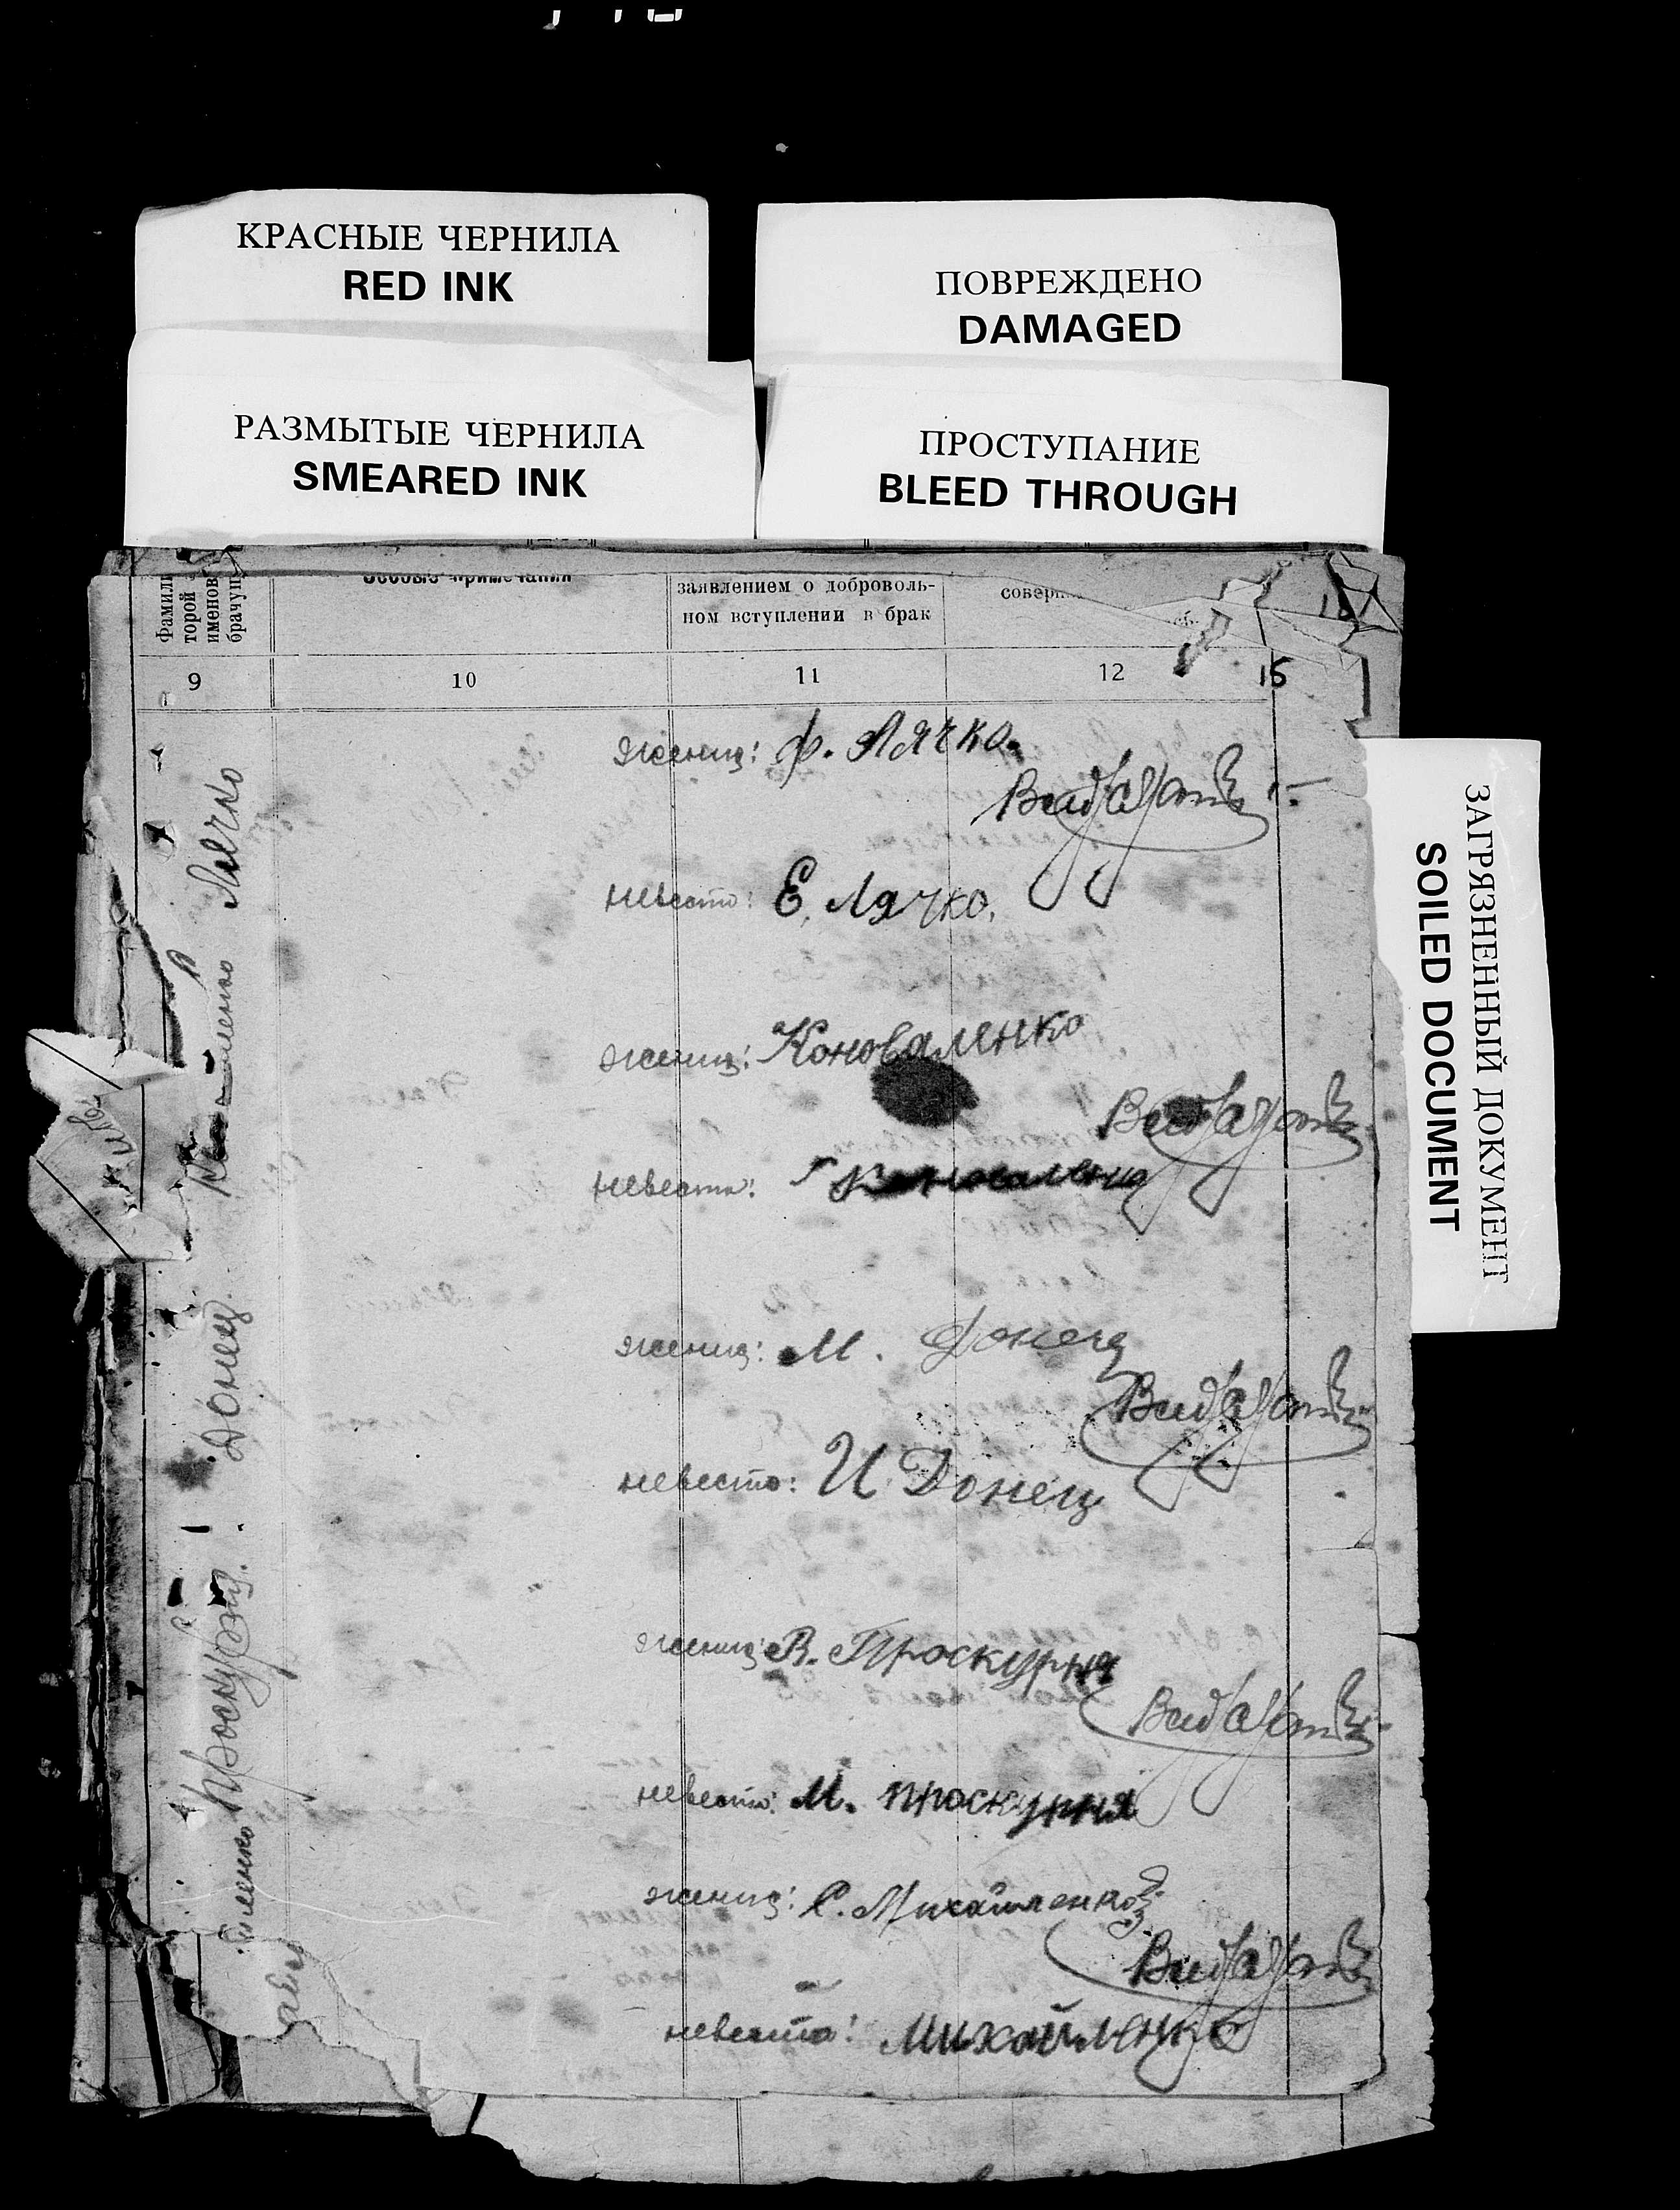 КРАСНЫЕ ЧЕРНИЛА
RED INK
ПОВРЕЖДЕНО
DAMAGED
РАЗМЫТЫЕ ЧЕРНИЛА
SMEARED INK
ПРОСТУПАНИЕ
BLEED THROUGH
ЗАГРЯЗНЕННЫЙ ДОКУМЕНТ
SOILED DOCUMENT
Фамили
торой
именов
брачущ
Особые примечания
заявлением о доброволь-
ном вступлении в брак
соверш
9
10
11
12
15
жених: Ф. Лячко.
невеста: Е. Лячко.
Лячко
жених: Коноваленко
невеста: Коноваленко
жених: М. Донец
невеста: И Донец
Донец.
жених: В. Проскурня
невеста: М. Проскурня
жених: С. Михайленко
невеста: Михайленко